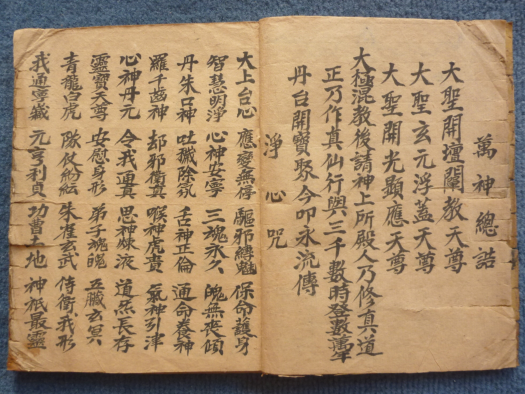 萬神總誥
大聖開壇闡教天尊
大聖玄元浮蓋天尊
大聖開光顯應天尊
大極混教後請神上所殿人乃修真道
正乃作真仙行與三千數時登
丹台開寶聚今叩永流傳
淨心咒
大上台心應變無停驅邪縛魅保命護身
智慧明淨心神安寧三魂永久魄無丧傾
丹朱口神吐穢除氛舌神正倫通命養神
羅千齒神却邪衛真喉神虎賁氣神引津
心神丹元令我通真思神煉液道炁長存
靈寶天尊安慰身形弟子魂魄五臟玄冥
青龍白虎隊仗紛紜朱雀玄武侍衛我形
我通 元亨利貞功曹土地神祇最靈